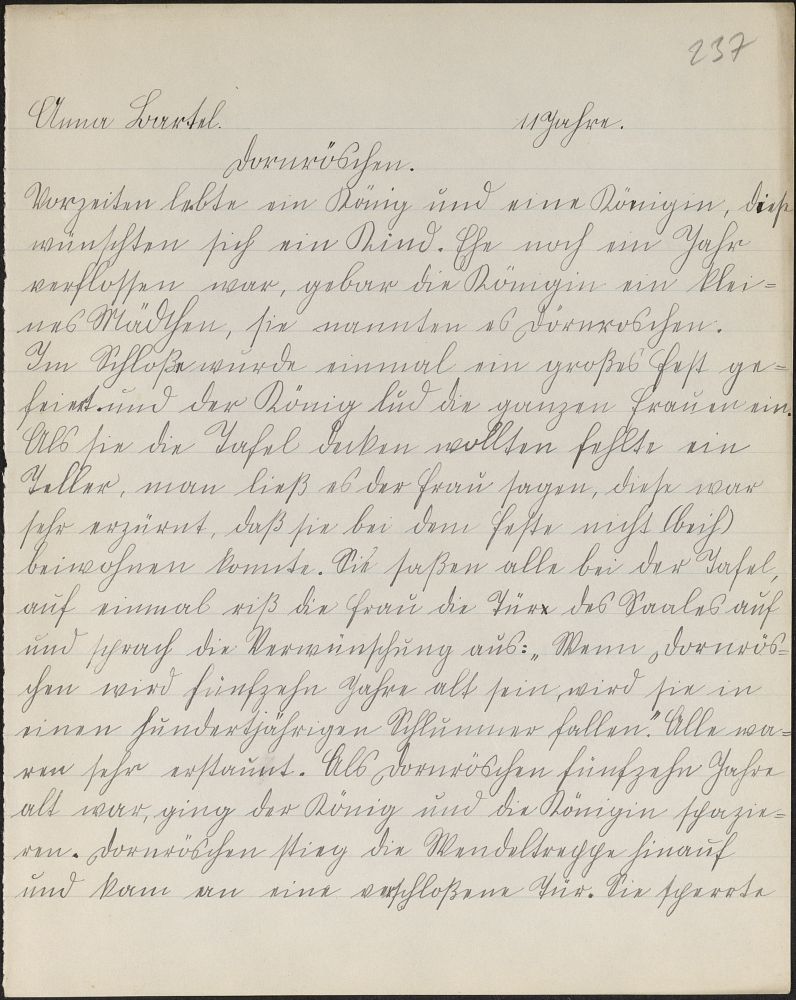 237
Anna Bartel. 11 Jahre.
Dornröschen.
Vorzeiten lebte ein König und eine Königin, diese
wünschten sich ein Kind. Ehe noch ein Jahr
verflossen war, gebar die Königin ein klei=
nes Mädchen, sie nannten es Dörnroschen.
Im Schloße wurde einmal ein großes Fest ge=
feiert und der König lud die ganzen Frauen ein.
Als sie die Tafel decken wollten fehlte ein
Teller, man ließ es der Frau sagen, diese war
sehr erzürnt, daß sie bei dem Feste nicht (beih)
beiwohnen konnte. Sie saßen alle bei der Tafel,
auf einmal riß die Frau die Tür des Saales auf
und sprach die Verwünschung aus: „Wenn Dornrös=
chen wird fünfzehn Jahre alt sein, wird sie in
einen hundertjährigen Schlummer fallen." Alle wa=
ren sehr erstaunt. Als Dornröschen fünfzehn Jahre
alt war, ging der König und die Königin spazie=
ren. Dornröschen stieg die Wendeltreppe hinauf
und kam an eine verschloßene Tür. Sie sperrte